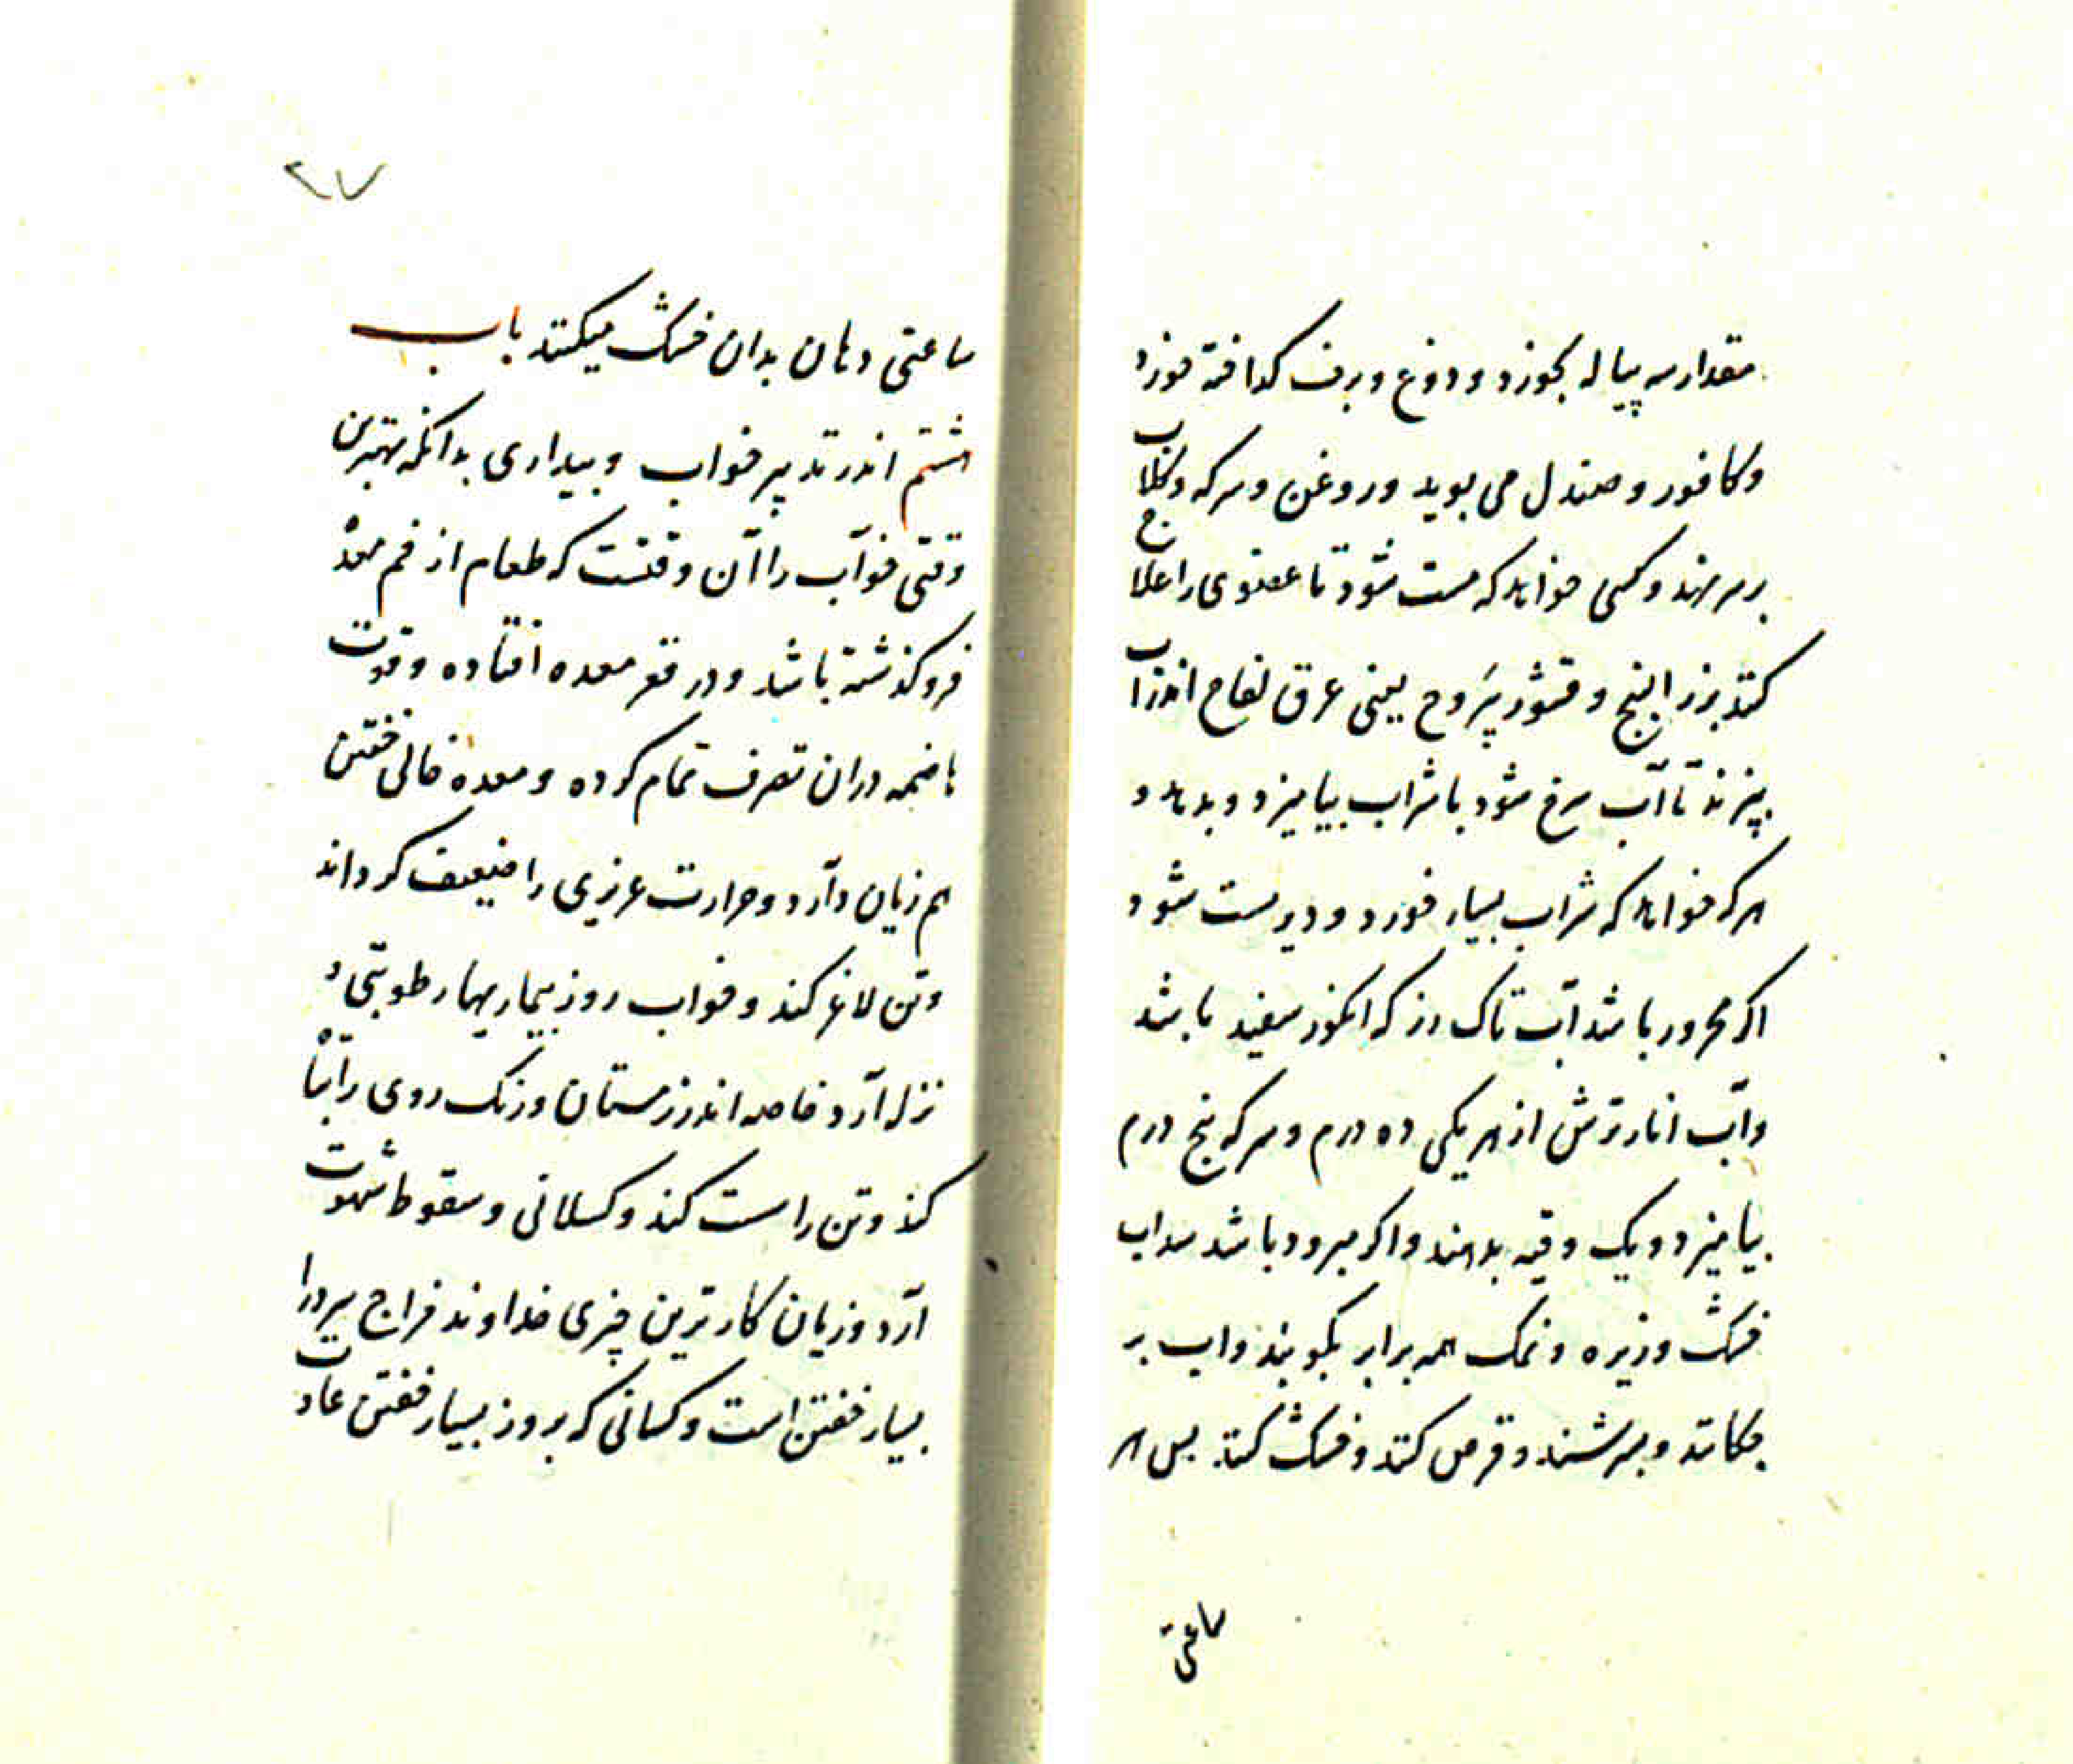 مقدار سه پیاله بخورد و دوغ و برف کداخته خورد
و کافور و صندل می بوید و روغن و سرکه و کلاب
بر سر نهند و کسی خواهد که مست شود تا عضوی را علاج
کنند بزر البنج و قشور یبروح یعنی عرق لفاح اندر آب
بپزند تا آب سرخ شود با شراب بیامیزد و بدهد و
هر که خواهد که شراب بسیار خورد و دیر مست شود
اکر محرور باشد آب تاک رز که انکور سفید باشد
و آب انار ترش از هر یکی ده درم و سرکه پنج درم
بیامیزد و یک وقیه بدهند و اکر مبرود باشد سداب
خشک و زیره و نمک همه برابر بکوبند و اب بر
چکانند و بسرشند و قرص کنند و خشک کنند پس هر
ساعتی
۲۷
ساعتی دهان بدان خشک میکنند باب
هشتم اندر تدبیر خواب و بیداری بدانکه بهترین
وقتی خواب را آن وقتست که طعام از فم معده
فرو کذشته باشد و در قعر معده افتاده و قوت
هاضمه دران تصرف تمام کرده و معده خالی خفتن
هم زیان دارد و حرارت عزیزی را ضعیف کرداند
و تن لاغر کند و خواب روز بیماریهاء رطوبتی و
نزله آرد خاصه اندر زمستان و رنک روی را تباه
کند و تن را سست کند و کسلانی و سقوط شهوت
آرد و زیان کارترین چیزی خداوند مزاج سرد را
بسیار خفتن است و کسانی که بروز بسیار خفتن عادت